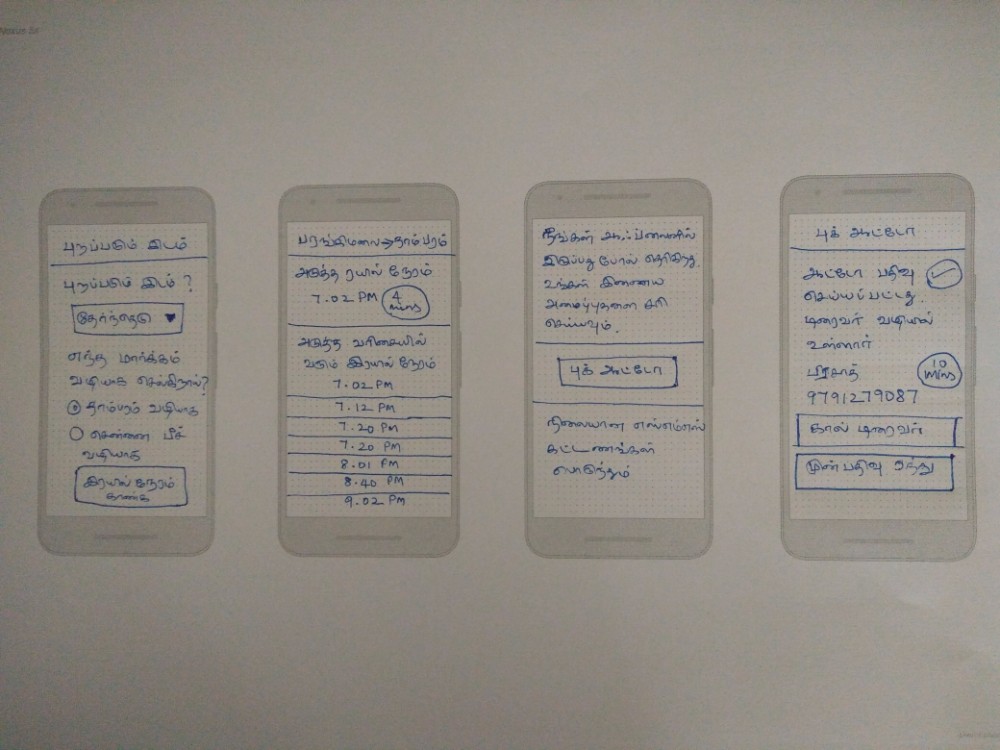 Nexus 5x
புறப்படும் இடம்
புறப்படும் இடம் ?
தேர்ந்தெடு
எந்த மார்க்கம்
வழியாக செல்கிறாய்?
தாம்பரம் வழியாக
சென்னை பீச்
வழியாக
இரயில் நேரம்
காண்க
பரங்கிமலை→தாம்பரம்
அடுத்த ரயில் நேரம்
7.02 PM 4 mins
அடுத்த வரிசையில்
வரும் இரயில் நேரம்
7.02 PM
7.12 PM
7.20 PM
7.20 PM
8.01 PM
8.40 PM
9.02 PM
நீங்கள் ஆஃப்லைனில்
இருப்பது போல் தெரிகிறது.
உங்கள் இணைய
அமைப்புகளை சரி
செய்யவும்.
புக் ஆட்டோ
நிலையான எஸ்எம்எஸ்
கட்டணங்கள்
பொருந்தும்
புக் ஆட்டோ
ஆட்டோ பதிவு
செய்யப்பட்டது.
டிரைவர் வழியில்
உள்ளார்
பிரசாத் 10 mins
9791279087
கால் டிரைவர்
முன்பதிவு ரத்து